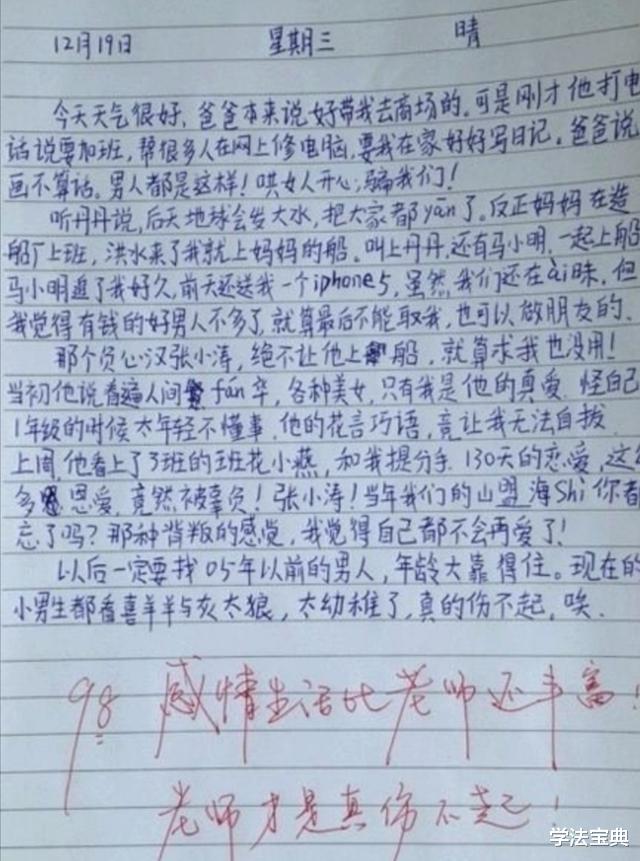 12月19日 星期三 晴
今天天气很好，爸爸本来说好带我去商场的。可是刚才他打电
话说要加班，帮很多人在网上修电脑，要我在家好好写日记。爸爸说
画不算话。男人都是这样！哄女人开心，骗我们！
听丹丹说，后天地球会发大水，把大家都yān了。反正妈妈在造
船厂上班，洪水来了我就上妈妈的船。叫上丹丹，还有马小明，一起上船
马小明追了我好久，前天还送我一个iphone5，虽然我们还在ài昧，但
我觉得有钱的好男人不多了，就算最后不能取我，也可以做朋友的。
那个负心汉张小涛，绝不让他上船，就算求我也没用！
当初他说看遍人间fán华，各种美女，只有我是他的真爱。怪自己
1年级的时候太年轻不懂事，他的花言巧语，竟让我无法自拔。
上周，他看上了3班的班花小燕，和我提分手。130天的恋爱，这
多恩爱，竟然被辜负！张小涛！当年我们的山盟海Shi你都
忘了吗？那种背叛的感觉，我觉得自己都不会再爱了！
以后一定要找05年以前的男人，年龄大靠得住。现在的
小男生都看喜羊羊与灰太狼，太幼稚了，真的伤不起，唉．
98 感情生活比老师还丰富！
老师才是真伤不起！
学法宝典